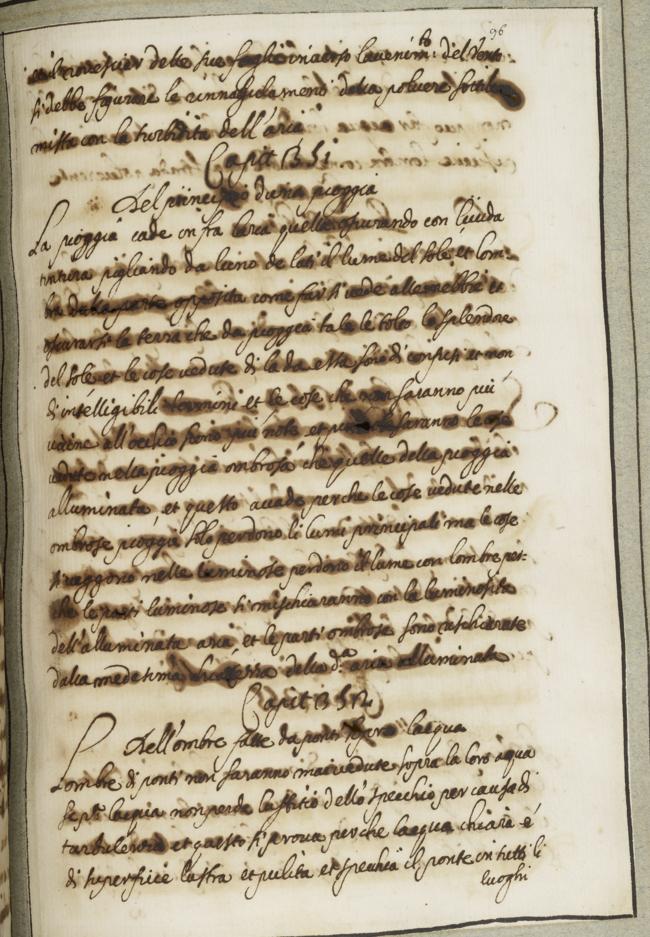 96
et il rovesciar delle sue foglie inverso l'avenim.to del vento
si debbe figurare le rannugolamenti dalla polvere sottile
mista con la turbidita dell'aria
Capit 351
Del principio d'una pioggia
La pioggia cade in fra l'aria quella oscurando con livida
tintura pigliando da l'uno de lati il lume del sole et lom:
bra dalla parte opposita come far si vede alle nebbie et
oscurarsi la terra che da pioggia tale le tolto lo splendore
del sole et le cose vedute di la da essa sono di confusi et non
di intelligibili termini et le cose che saranno piu
vicine all'occhio sieno piu note et piu saranno le cose
vedute nella pioggia ombrosa che quelle della pioggia
alluminata, et questo accade perche le cose vedute nelle
ombrose pioggi solo perdono li lumi principali ma le cose
si veggono nelle luminose perdono il lume con lombre per:
che le parti luminose si mischiaranno con la luminosita
dell'alluminata aria, et le parti ombrose sono rischiarate
dalla medesima della d.a aria alluminata
Capit 352
Dell'ombre fatte da ponti sopra lacqua
Lombre di ponti non saranno mai vedute sopra la loro acqua
se p.a lacqua non perde l'offitio dello specchio per causa di
turbulentia et questo si prova perche lacqua chiara é
di superficie lustra et pulita et specchia il ponte in tutti li
luoghi